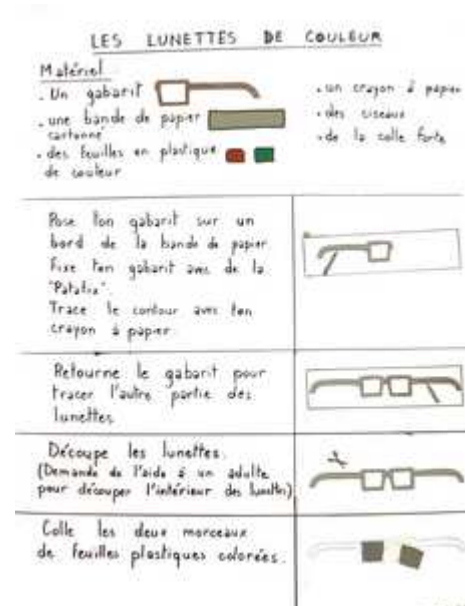 LES LUNETTES DE COULEUR
Matériel
. Un gabarit
. une bande de papier
cartonné
. des feuilles en plastique
de couleur
. un crayon à papier
. des ciseaux
. de la colle forte
Pose ton gabarit sur un
bord de la bande de papier
Fixe ton gabarit avec de la
"Patafix".
Trace le contour avec ton
crayon à papier.
Retourne le gabarit pour
tracer l'autre partie des
lunettes
Découpe les lunettes.
(Demande de l'aide à un adulte
pour découper l'intérieur des lunettes)
Colle les deux morceaux
de feuilles plastiques colorées.